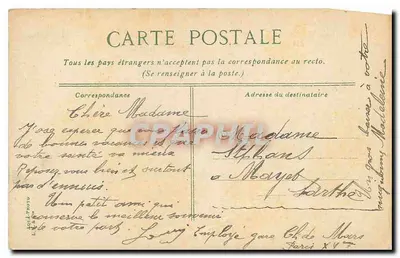 CARTE POSTALE
Tous les pays étrangers n'acceptent pas la correspondance au recto.
(Se renseigner à la poste.)
Correspondance
Adresse du destinataire
Chère Madame
J'ose espérer que vous
de bonnes vacances et que
votre santé va mieux
Reposez vous bien et surtout
pas d'ennuis.
Un petit ami qui
conserve le meilleur souvenir
de votre part.
Employé gare Ch de Mars
Paris XV
Madame
Stphans
à Mayet
Sarthe
Un gros baiser à votre
mignonne Madeleine